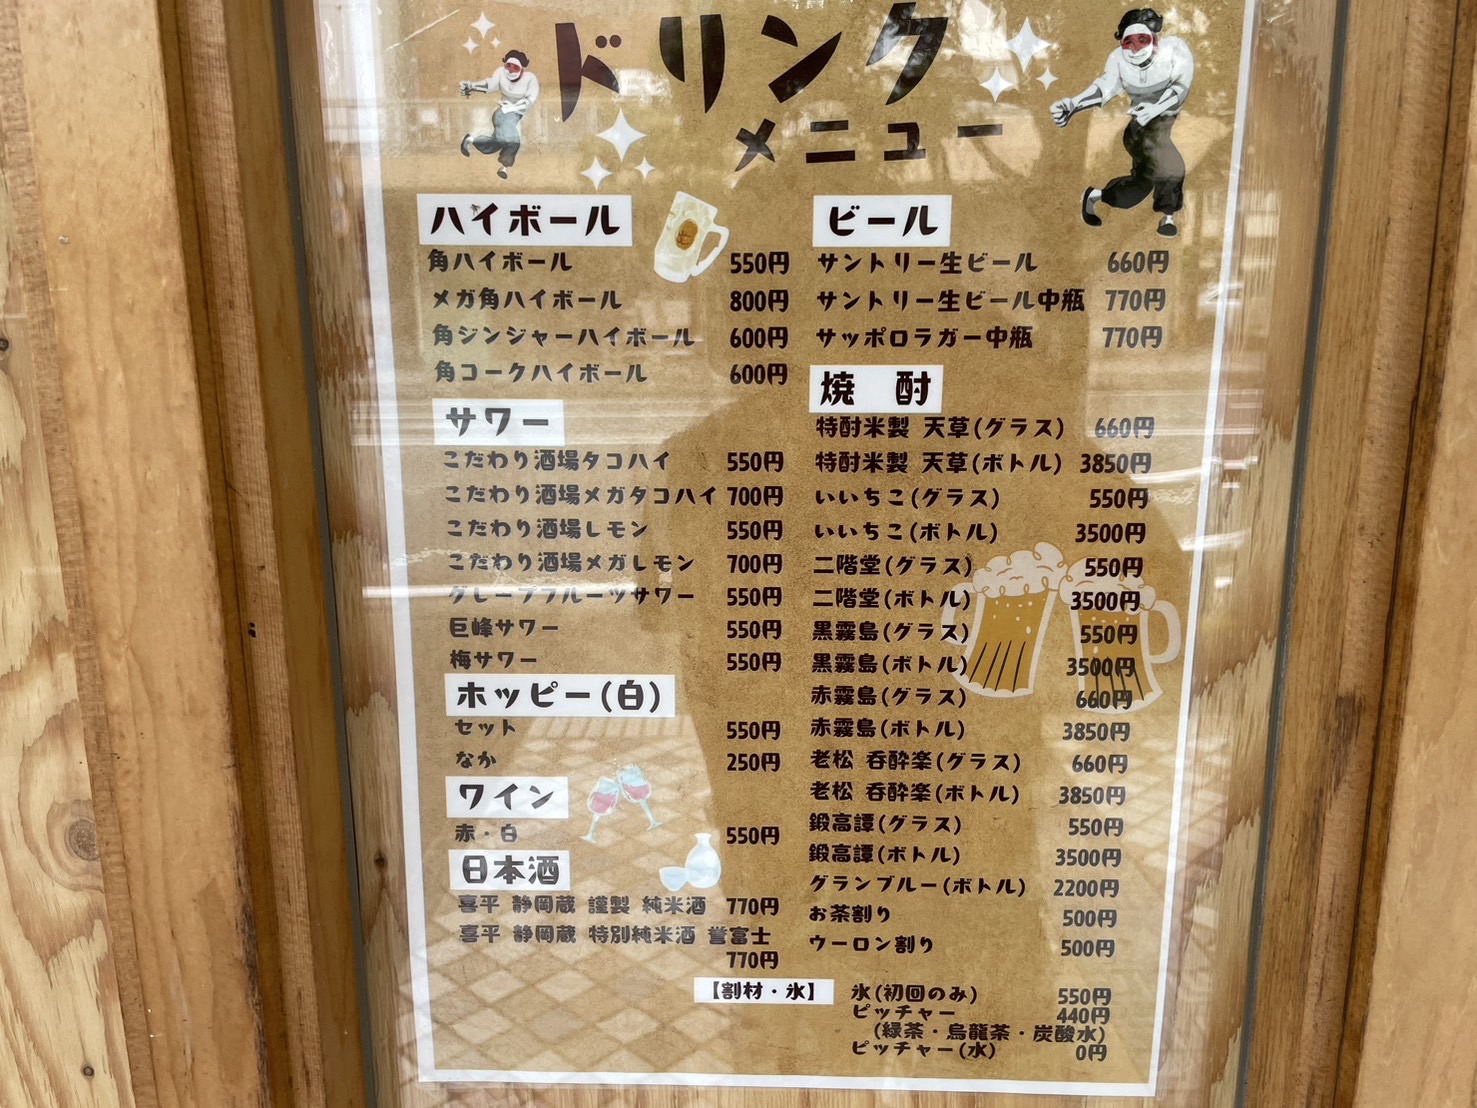 ドリンク
メニュー
ハイボール
角ハイボール 550円
メガ角ハイボール 800円
角ジンジャーハイボール 600円
角コークハイボール 600円
サワー
こだわり酒場タコハイ 550円
こだわり酒場メガタコハイ 700円
こだわり酒場レモン 550円
こだわり酒場メガレモン 700円
グレープフルーツサワー 550円
巨峰サワー 550円
梅サワー 550円
ホッピー(白)
セット 550円
なか 250円
ワイン
赤・白 550円
日本酒
喜平 静岡蔵 謹製 純米酒 770円
喜平 静岡蔵 特別純米酒 誉富士
770円
ビール
サントリー生ビール 660円
サントリー生ビール中瓶 770円
サッポロラガー中瓶 770円
焼 酎
特酎米製 天草(グラス) 660円
特酎米製 天草(ボトル) 3850円
いいちこ(グラス) 550円
いいちこ(ボトル) 3500円
二階堂(グラス) 550円
二階堂(ボトル) 3500円
黒霧島(グラス) 550円
黒霧島(ボトル) 3500円
赤霧島(グラス) 660円
赤霧島(ボトル) 3850円
老松 呑酔楽(グラス) 660円
老松 呑酔楽(ボトル) 3850円
鍛高譚(グラス) 550円
鍛高譚(ボトル) 3500円
グランブルー(ボトル) 2200円
お茶割り 500円
ウーロン割り 500円
【割材・氷】
氷(初回のみ) 550円
ピッチャー 440円
(緑茶・烏龍茶・炭酸水)
ピッチャー(水) 0円